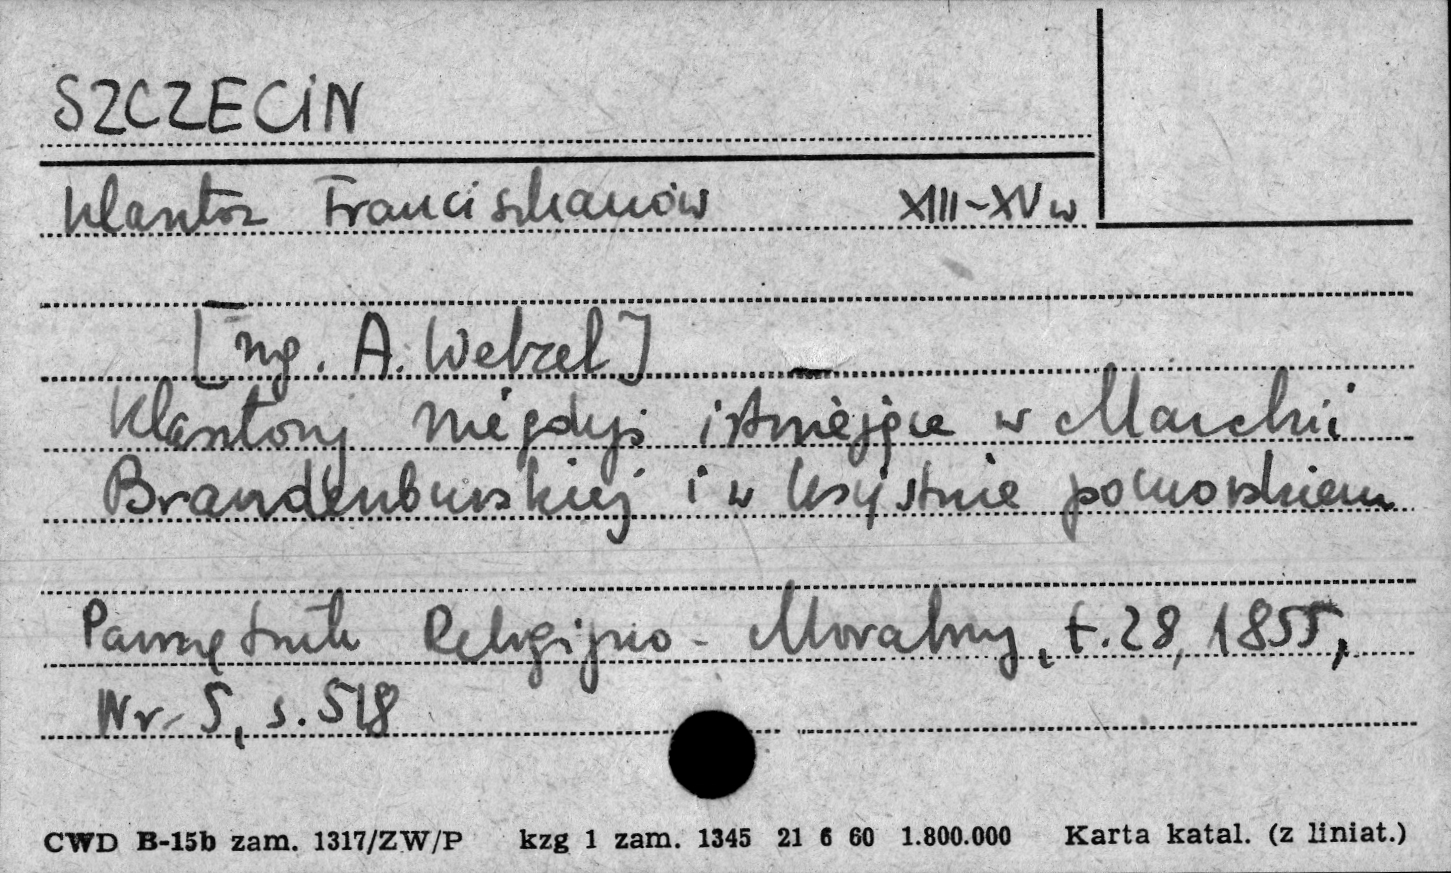 SZCZECIN
Klasztor Franciszkanów XIII-XV w
[ng. A. Wetzel]
Klasztory niegdyś istniejące w Marchii
Brandenburskiej i w Księstwie pomorskiem
Pamiętnik Religijno-Moralny, t. 28, 1855,
Nr 5, s. 518
CWD B-15b zam. 1317/ZW/P kzg 1 zam. 1345 21 6 60 1.800.000 Karta katal. (z liniat.)